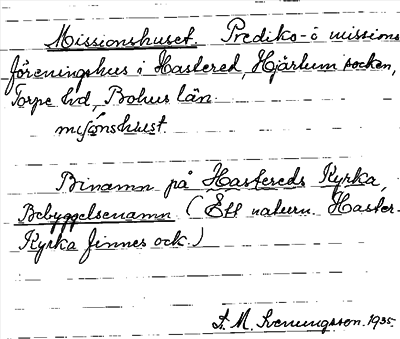 Missionshuset. Prediko- o missions
föreningshus i Hastered, Hjärtum socken,
Torpe hd, Bohus län.
misónshust.
Binamn på Hastereds Kyrka,
Bebyggelsenamn (Ett naturn. Haster-
Kyrka finnes ock.)
A. M. Svenungsson. 1935.